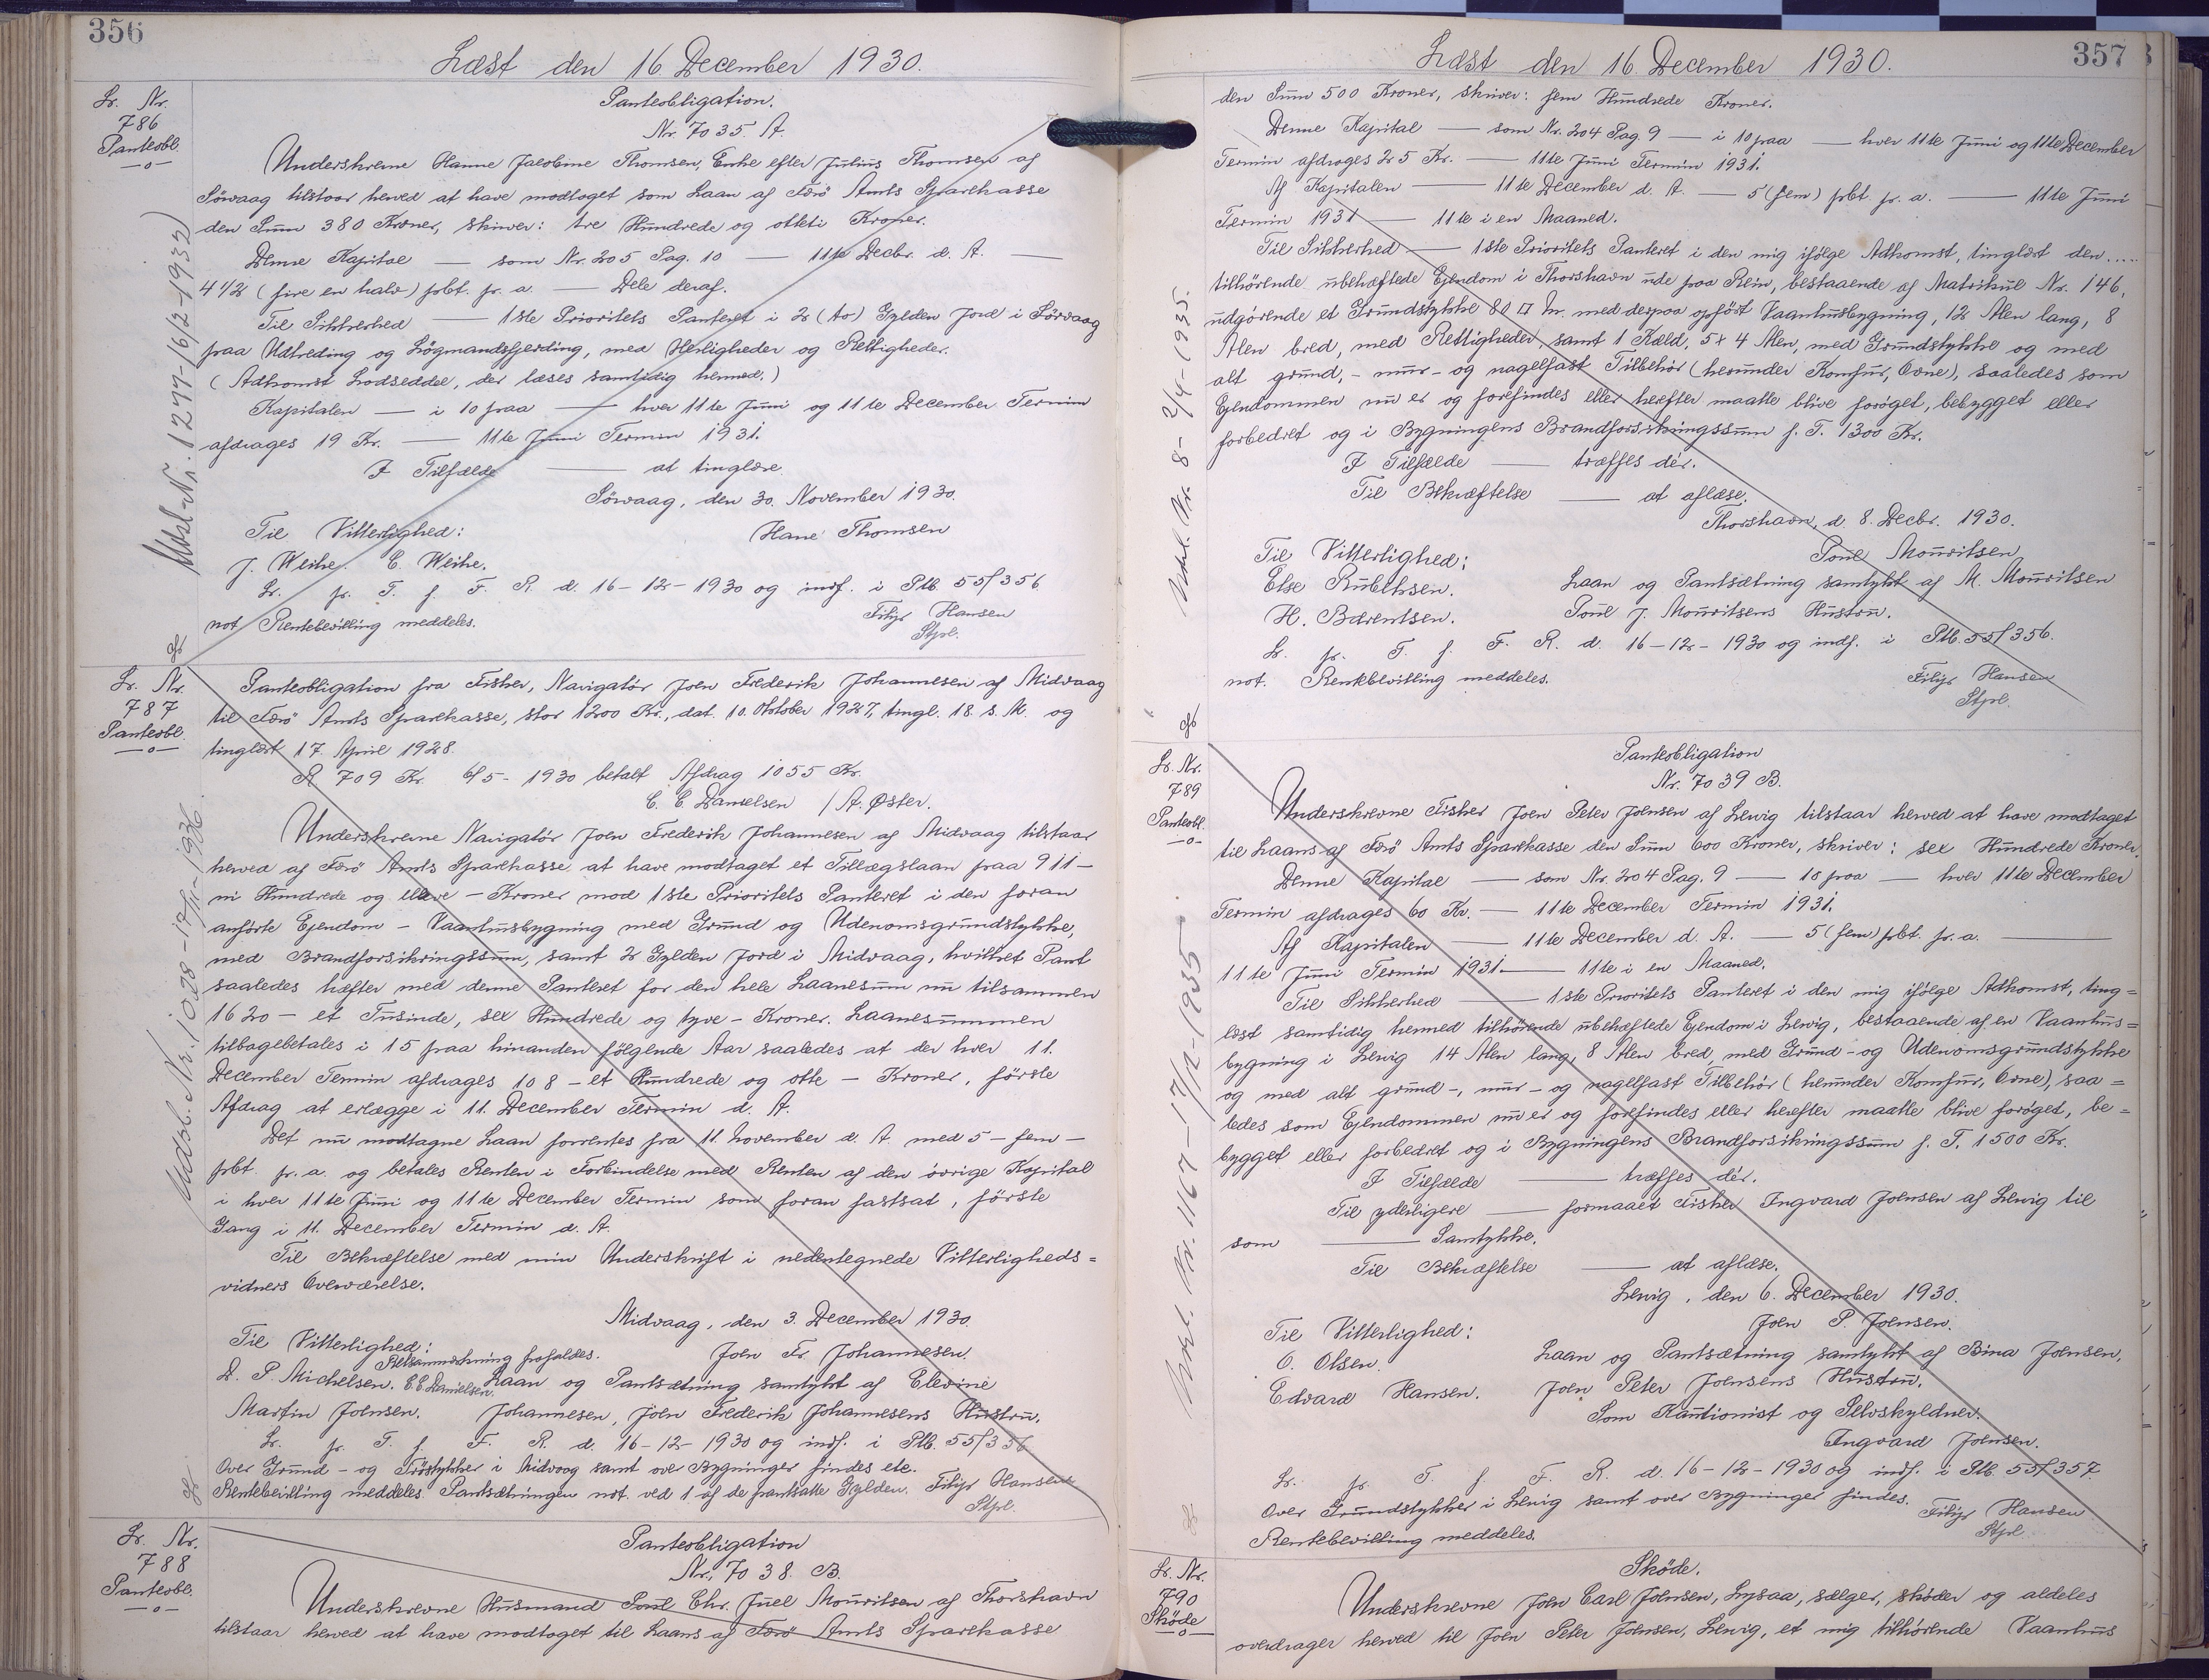 356
Læst den 16 December 1930.
Lr. Nr.
786
Panteobl.
Panteobligation.
Nr. 7035. A.
Underskrevne Hanne Jacobine Thomsen, Enke efter Julius Thomsen af
Sörvaag tilstaar herved at have modtaget som Laan af Færö Amts Sparekasse
den Sum 380 Kroner, skriver: tre Hundrede og otteti Kroner.
Denne Kapital — som Nr. 205 Pag. 10 — 11te Decbr. d. A. —
4 1/2 (fire en halv) pbt. pr. a. — Dele deraf.
Til Sikkerhed — 1ste Prioritets Panteret i 2 (to) Gylden Jord i Sörvaag
paa Udtreding og Lögmandsfjerding, med Herligheder og Rettigheder.
(Adkomst Lodseddel, der læses samtidig hermed.)
Kapitalen — i 10 paa — hver 11te Juni og 11te December Termin
afdrages 19 Kr. — 11te Juni Termin 1931.
I Tilfælde — at tinglæse.
Sörvaag, den 30. November 1930.
Til Vitterlighed: Hane Thomsen
J. Weihe. C. Weihe.
Lr. pr. T. f. F. R. d. 16-12-1930 og indf. i Ptb. 55/356
not. Rentebevilling meddeles. Filip Hansen
Stpl.
Udsl. Nr. 1277-16/2-1932
Lr. Nr.
787
Panteobl.
Panteobligation fra Fisker, Navigatör Joen Frederik Johannesen af Midvaag
til Færö Amts Sparekasse, stor 1200 Kr., dat. 10. Oktober 1927, tingl. 18. s. M. og
tinglæst 17. April 1928.
R 709 Kr. 6/5-1930 betalt Afdrag 1055 Kr.
C. C. Danielsen / A. Øster.
Underskrevne Navigatör Joen Frederik Johannesen af Midvaag tilstaar
herved af Færö Amts Sparekasse at have modtaget et Tillægslaan paa 911 —
ni Hundrede og elleve — Kroner mod 1ste Prioritets Panteret i den foran
anförte Ejendom — Vaanhusbygning med Grund og Udenomsgrundstykke,
med Brandforsikringssum, samt 2 Gylden Jord i Midvaag, hvilket Pant
saaledes hæfter med denne Panteret for den hele Laanesum nu tilsammen
1620 — et Tusinde, sex Hundrede og tyve — Kroner. Laanesummen
tilbagebetales i 15 paa hinanden fölgende Aar saaledes at der hver 11.
December Termin afdrages 108 — et Hundrede og otte — Kroner, förste
Afdrag at erlægge i 11. December Termin d. A.
Det nu modtagne Laan forrentes fra 11. November d. A. med 5 — fem —
pbt. pr. a. og betales Renten i Forbindelse med Renten af den övrige Kapital
i hver 11te Juni og 11te December Termin som foran fastsat, förste
Gang i 11. December Termin d. A.
Til Bekræftelse med min Underskrift i nedentegnede Vitterligheds=
vidners Overværelse.
Midvaag, den 3. December 1930.
Til Vitterlighed: Joen Fr. Johannesen.
frafaldes.
D. P. Michelsen. C. C. Danielsen. Laan og Pantsætning samtykt af Elevine
Martin Joensen. Johannesen, Joen Frederik Johannesens Hustru.
Lr. pr. T. f. F. R. d. 16-12-1930 og indf. i Ptb. 55/356
Over Grund- og Tröstykker i Midvaag samt over Bygninger findes etc.
Rentebevilling meddeles. Pantsætningen not. ved 1 af de pantsatte Gylden. Filip Hansen
Stpl.
Udsl. Nr. 1028-1936
Lr. Nr.
788
Panteobl.
Panteobligation
Nr. 7038. B.
Underskrevne Husmand Poul Chr. Juel Mouritsen af Thorshavn
tilstaar herved at have modtaget til Laans af Færö Amts Sparekasse
357
Læst den 16. December 1930.
den Sum 500 Kroner, skriver: fem Hundrede Kroner.
Denne Kapital — som Nr. 204 Pag. 9 — i 10 paa — hver 11te Juni og 11te December
Termin afdrages 25 Kr. — 11te Juni Termin 1931.
Af Kapitalen — 11te December d. A. — 5 (fem) pbt. pr. a. — 11te Juni
Termin 1931 — 11te i en Maaned.
Til Sikkerhed — 1ste Prioritets Panteret i den mig ifölge Adkomst, tinglæst den.....
tilhörende ubehæftede Ejendom i Thorshavn ude paa Rein, bestaaende af Matrikul Nr. 146,
udgörende et Grundstykke 80 □ m. med derpaa opfört Vaanhusbygning, 12 Alen lang, 8
Alen bred, med Rettigheder samt 1 Kæld. 5 x 4 Alen, med Grundstykke og med
alt grund,- mur- og nagelfast Tilbehör (herunder Komfur, Ovne), saaledes som
Ejendommen nu er og forefindes eller herefter maatte blive foröget, bebygget eller
forbedret og i Bygningens Brandforsikringssum f. T. 1300 Kr.
I Tilfælde — træffes dér.
Til Bekræftelse — at aflæse.
Thorshavn, d. 8. Decbr. 1930.
Til Vitterlighed: Poul Mouritsen
Else Rubeksen. Laan og Pantsætning samtykt af M. Mouritsen
H. Bærentsen. Poul J. Mouritsens Hustru.
Lr. pr. T. f. F. R. d. 16-12-1930 og indf. i Ptb. 55/356.
not. Rentebevilling meddeles. Filip Hansen
Stpl.
Udsl. Nr. 8-2/4-1935.
Lr. Nr.
789
Panteobl.
Panteobligation
Nr. 7039 B.
Underskrevne Fisker Joen Peter Joensen af Lervig tilstaar herved at have modtaget
til Laans af Færö Amts Sparekasse den Sum 600 Kroner, skriver: sex Hundrede Kroner.
Denne Kapital — som Nr. 204 Pag. 9 — 10 paa — hver 11te December
Termin afdrages 60 Kr. — 11te December Termin 1931.
Af Kapitalen — 11te December d. A. — 5 (fem) pbt. pr. a. —
11te Juni Termin 1931. — 11te i en Maaned.
Til Sikkerhed — 1ste Prioritets Panteret i den mig ifölge Adkomst, ting=
læst samtidig hermed tilhörende ubehæftede Ejendom i Lervig, bestaaende af en Vaanhus=
bygning i Lervig 14 Alen lang, 8 Alen bred, med Grund- og Udenomsgrundstykke
og med alt grund-, mur- og nagelfast Tilbehör (herunder Komfur, Ovne), saa=
ledes som Ejendommen nu er og forefindes eller herefter maatte blive foröget, be=
bygget eller forbedret og i Bygningens Brandforsikringssum f. T. 1500 Kr.
I Tilfælde — træffes dér.
Til yderligere — formaaet Fisker Ingvard Joensen af Lervig til
som — Samtykke.
Til Bekræftelse — at aflæse.
Lervig, den 6. December 1930.
Til Vitterlighed: Joen P. Joensen.
O. Olsen. Laan og Pantsætning samtykt af Bina Joensen,
Edvard Hansen. Joen Peter Joensens Hustru.
Som Kautionist og Selvskyldner.
Ingvard Joensen.
Lr. pr. T. f. F. R. d. 16-12-1930 og indf. i Ptb. 55/357.
Over Grundstykker i Lervig samt over Bygninger findes. Filip Hansen
Rentebevilling meddeles. Stpl.
Udsl. Nr. 1167-17/12-1935
Lr. Nr.
790
Sköde
Sköde.
Underskrevne Joen Carl Joensen, Lysaa, sælger, sköder og aldeles
overdrager herved til Joen Peter Joensen, Lervig, et mig tilhörende Vaanhus